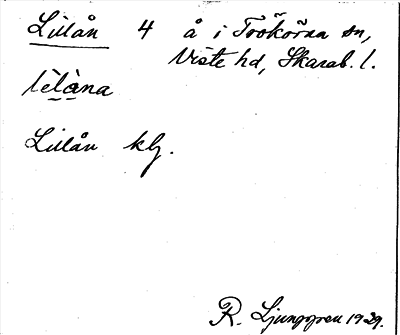 Lillån 4 å i Tråkörna sn,
Viste hd, Skarab. l.
lìlàna
Lillån klj.
R. Ljunggren 1929.